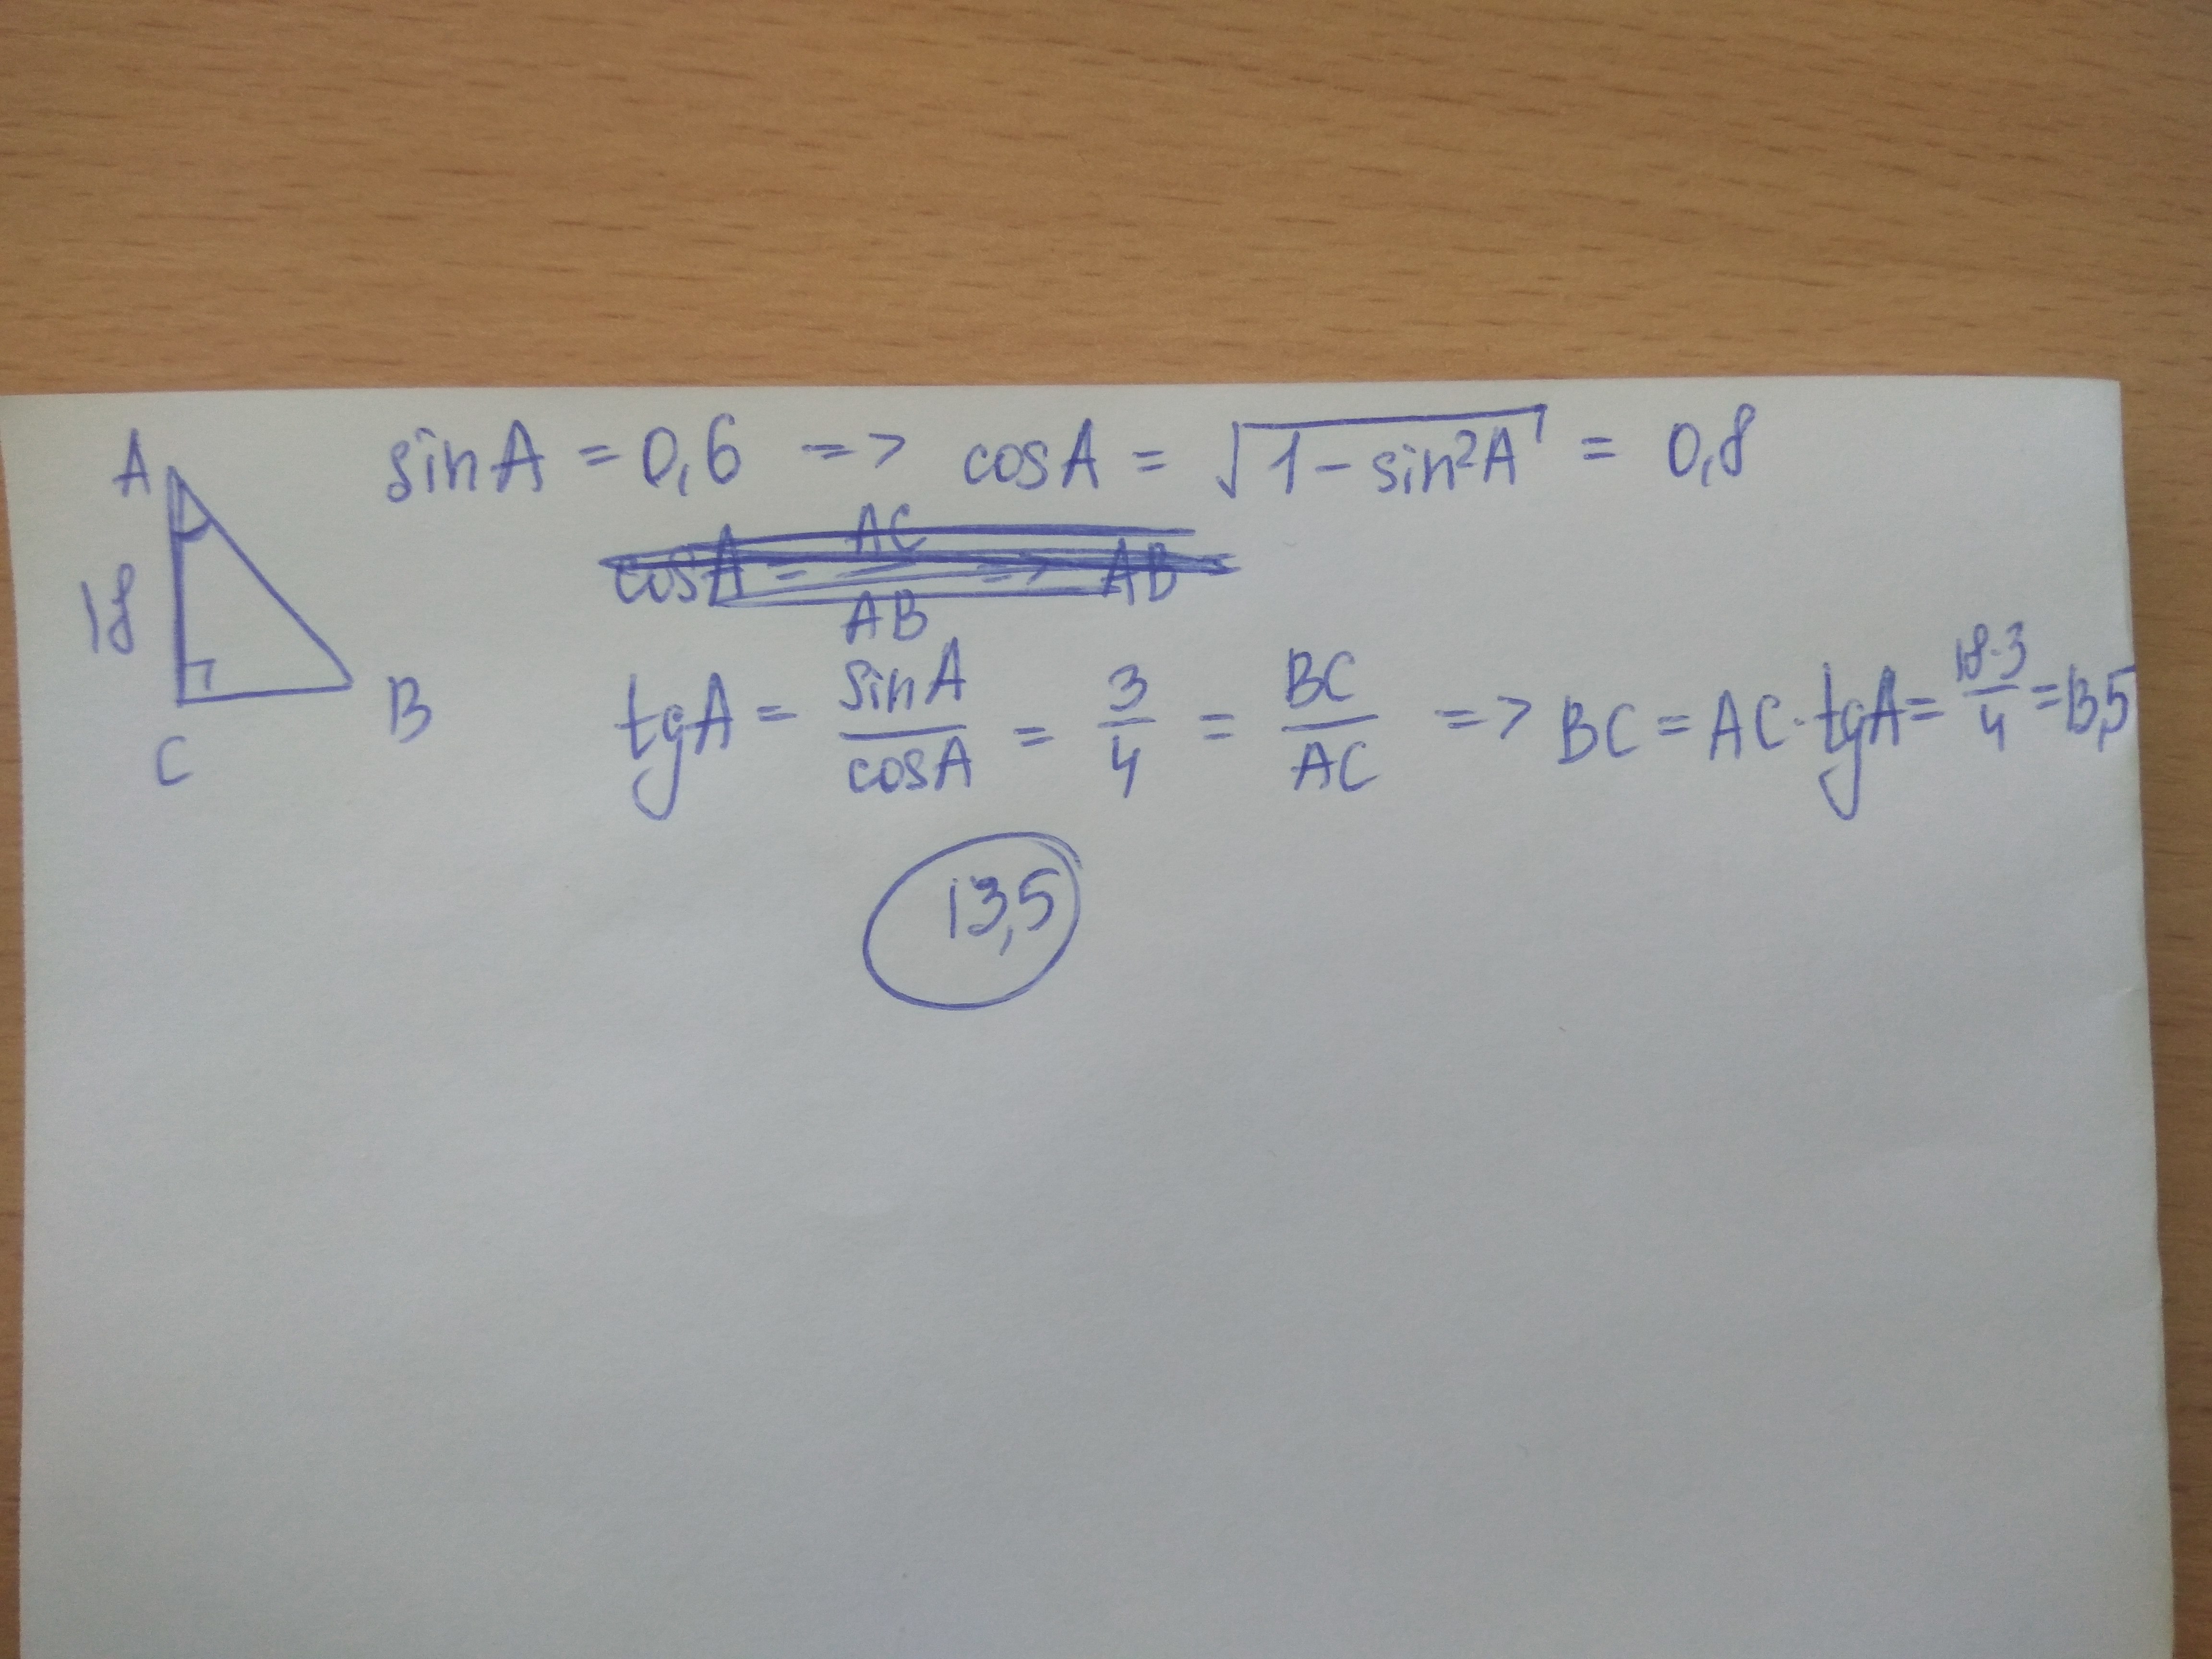 A
18
C
B
sin A = 0,6 => cos A = √(1 - sin²A) = 0,8
cos A = AC/AB => AB
tg A = sin A/cos A = 3/4 = BC/AC => BC = AC · tg A = 18·3/4 = 13,5
13,5